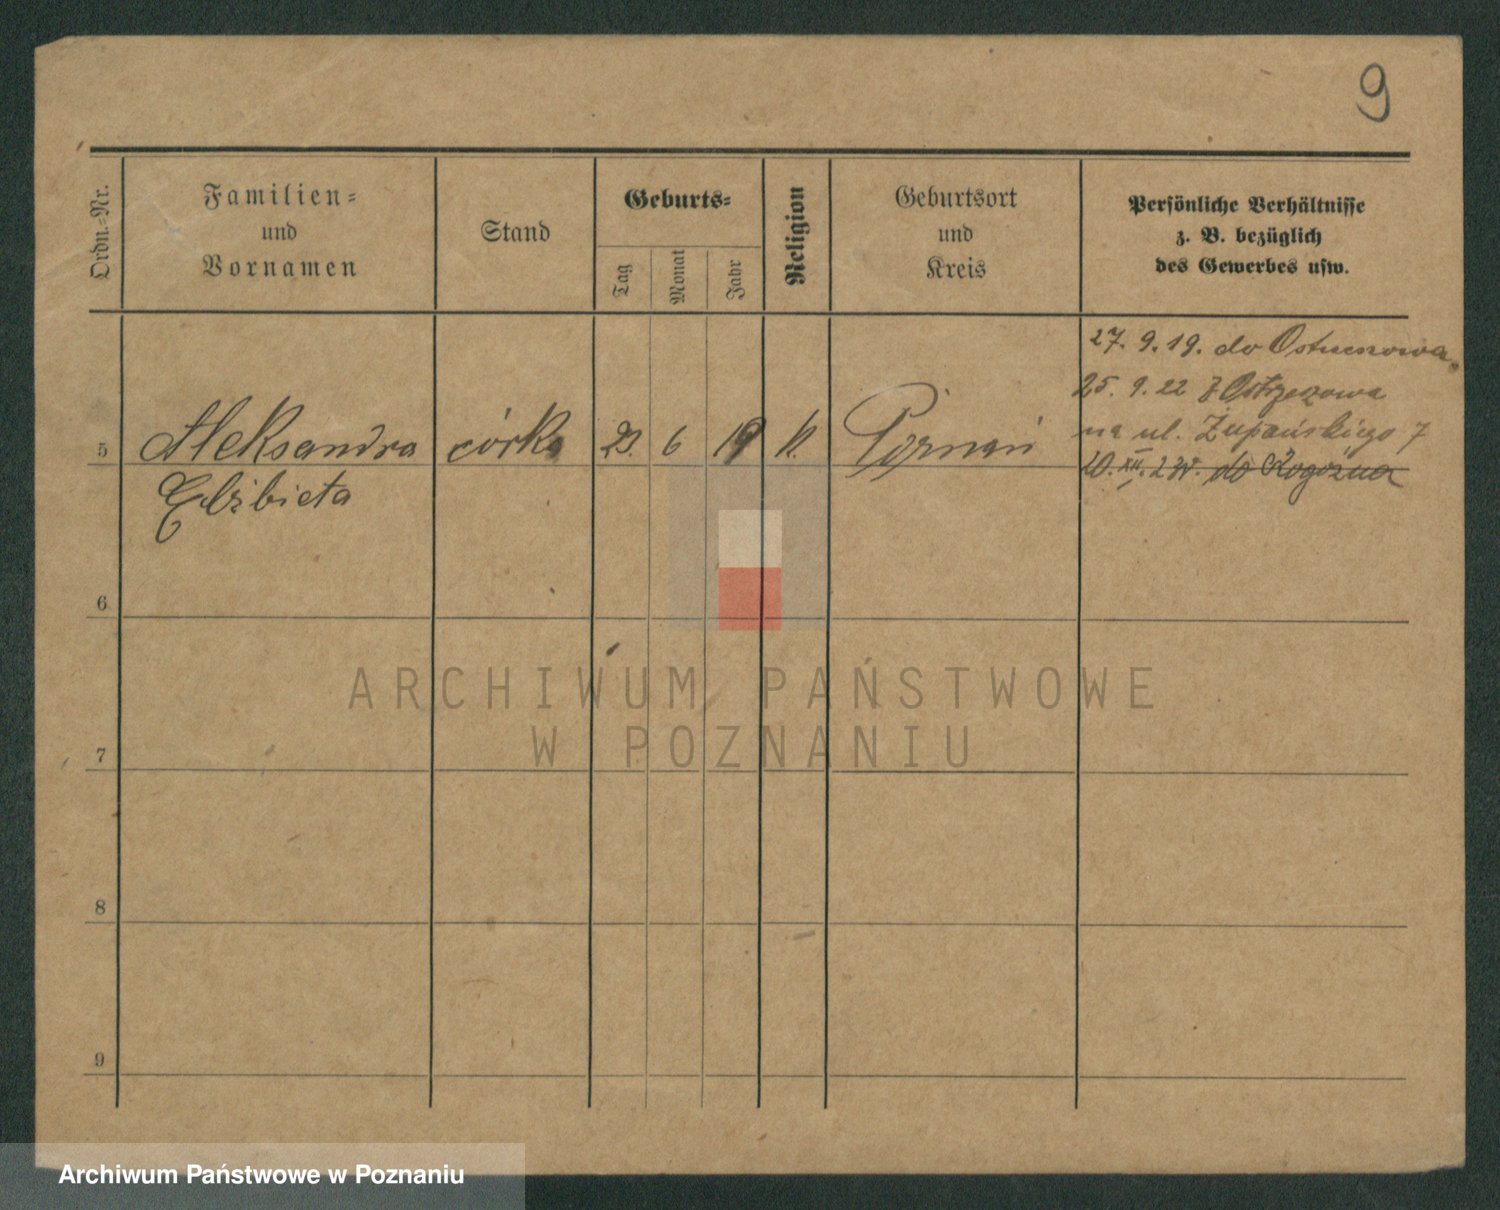 9
Ordn.=Nr.
Familien=
und
Vornamen
Stand
Geburts=
Tag
Monat
Jahr
Religion
Geburtsort
und
Kreis
Persönliche Verhältnisse
z. B. bezüglich
des Gewerbes usw.
27. 9. 19. do
25. 9. 22 z Ostrzeszowa
na ul. Żupańskiego 7
5 Aleksandra córka 23. 6 19 k. Poznań
20. XII. do Rogoźna
Elżbieta
6
ARCHIWUM PAŃSTWOWE
W POZNANIU
7
8
9
Archiwum Państwowe w Poznaniu